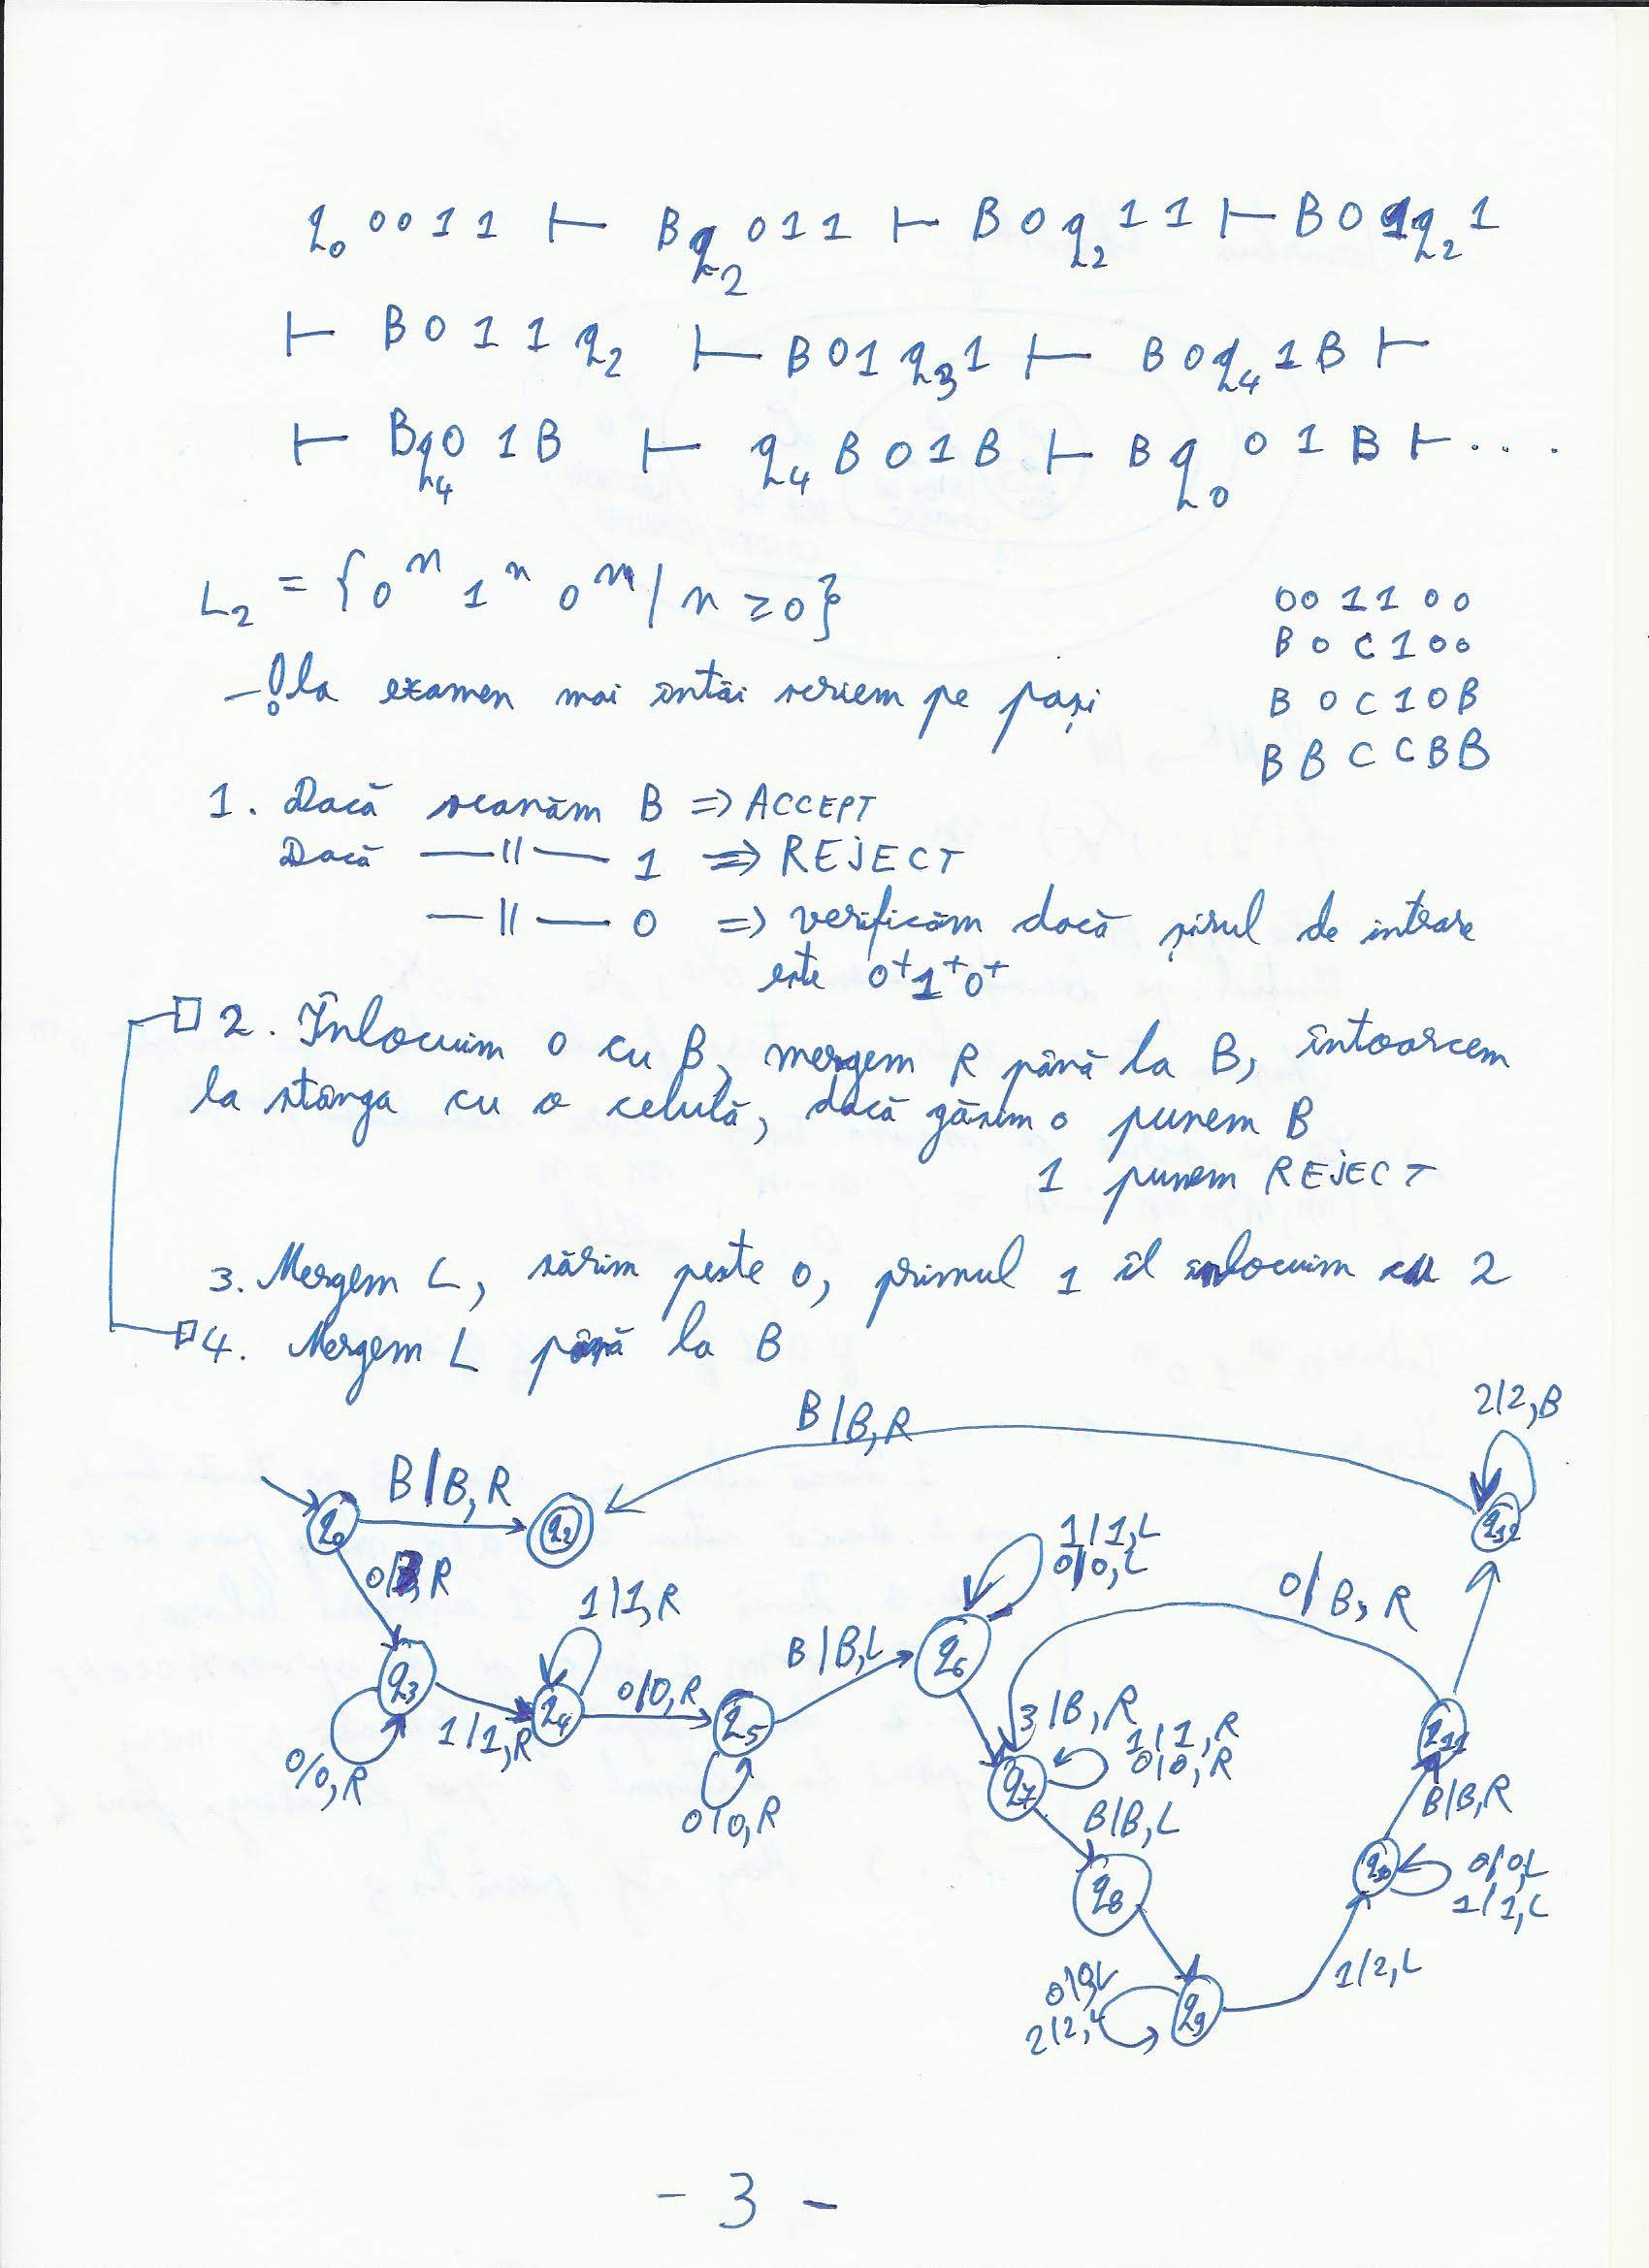 q₀ 0 0 1 1 ⊢ B q₂ 0 1 1 ⊢ B 0 q₂ 1 1 ⊢ B 0 1 q₂ 1
⊢ B 0 1 1 q₂ ⊢ B 0 1 q₃ 1 ⊢ B 0 q₄ 1 B ⊢
⊢ B q₄ 0 1 B ⊢ q₄ B 0 1 B ⊢ B q₀ 0 1 B ⊢ . . . .
L₂ = { 0ⁿ 1ⁿ 0ⁿ | n ≥ 0 }
0 0 1 1 0 0
B 0 C 1 0 0
B 0 C 1 0 B
B B C C B B
– ! la examen mai întâi scriem pe pași
1. Dacă scanăm B => ACCEPT
Dacă —ıı— 1 => REJECT
—ıı— 0 => verificăm dacă șirul de intrare
este 0⁺1⁺0⁺
2. Înlocuim 0 cu B, mergem R până la B, întoarcem
la stânga cu o celulă, dacă găsim 0 punem B
1 punem REJECT
3. Mergem L, sărim peste 0, primul 1 îl înlocuim cu 2
4. Mergem L până la B
2/2, B
B/B, R
B/B, R
q₀
q₂
q₁₂
0/ , R
1/1, R
1/1, L
0/0, L
0/B, R
B/B, L
q₆
q₃
q₄
0/0, R
q₅
1/1, R
0/0, R
0/0, R
3/B, R
1/1, R
0/0, R
q₁₁
q₇
B/B, L
B/B, R
q₈
q₁₀
0/0, L
1/1, L
0/0, L
2/2, L
q₉
1/2, L
- 3 -